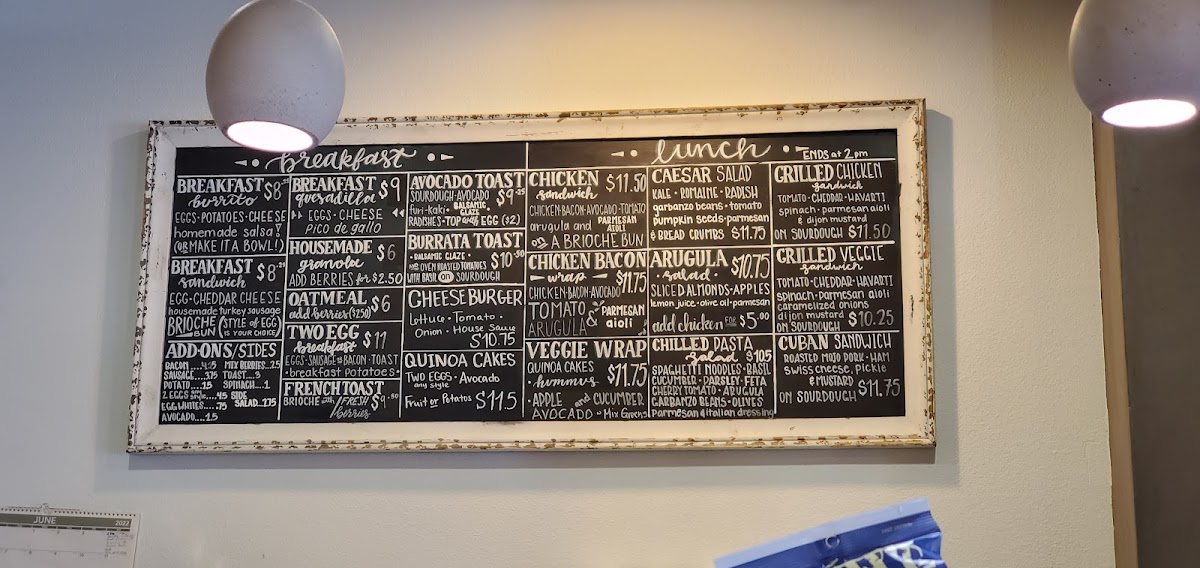 breakfast
BREAKFAST
burrito $8
EGGS·POTATOES·CHEESE
homemade salsa
(OR MAKE IT A BOWL!)
BREAKFAST
sandwich $8
EGG·CHEDDAR CHEESE
housemade turkey sausage
BRIOCHE BUN (STYLE of EGG IS YOUR CHOICE)
ADD-ONS/SIDES
BACON MIX BERRIES
SAUSAGE TOAST
POTATO SPINACH
2 EGGS SIDE
EGG WHITES SALAD
AVOCADO
BREAKFAST
quesadilla $9
EGGS·CHEESE
pico de gallo
HOUSEMADE
granola $6
ADD BERRIES for $2.50
OATMEAL $6
add berries ($2.50)
TWO EGG
breakfast $11
EGGS·SAUSAGE or BACON·TOAST
·breakfast potatoes·
FRENCH TOAST
BRIOCHE with FRESH berries $9.50
AVOCADO TOAST
SOURDOUGH·AVOCADO $9
furi-kaki· BALSAMIC GLAZE
RADISHES·TOP with EGG ($2)
BURRATA TOAST
·BALSAMIC GLAZE· $10.50
OVEN ROASTED TOMATOES
with BASIL on SOURDOUGH
CHEESEBURGER
Lettuce·Tomato·
Onion·House Sauce
$10.75
QUINOA CAKES
TWO EGGS·Avocado
any style
Fruit or Potatoes $11.5
lunch
ENDS at 2pm
CHICKEN $11.50
sandwich
CHICKEN·BACON·AVOCADO·TOMATO
arugula and PARMESAN AIOLI
on A BRIOCHE BUN
CHICKEN BACON
wrap $11.75
CHICKEN·BACON·AVOCADO
TOMATO
ARUGULA & PARMESAN aioli
VEGGIE WRAP
QUINOA CAKES
·hummus $11.75
·APPLE and CUCUMBER
AVOCADO·Mix Greens
CAESAR SALAD
KALE·ROMAINE·RADISH
garbanzo beans·tomato
pumpkin seeds·parmesan
& BREAD CRUMBS $11.75
ARUGULA
·salad· $10.75
SLICED ALMONDS·APPLES
lemon juice·olive oil·parmesan
add chicken FOR $5.00
CHILLED PASTA
salad
SPAGHETTI NOODLES·BASIL
CUCUMBER·PARSLEY·FETA
CHERRY TOMATO·ARUGULA
GARBANZO BEANS·OLIVES
parmesan & italian dressing
GRILLED CHICKEN
sandwich
TOMATO·CHEDDAR·HAVARTI
spinach·parmesan aioli
& dijon mustard
ON SOURDOUGH $11.50
GRILLED VEGGIE
sandwich
TOMATO·CHEDDAR·HAVARTI
spinach·parmesan aioli
caramelized onions
dijon mustard
ON SOURDOUGH $10.25
CUBAN SANDWICH
ROASTED MOJO PORK·HAM
swiss cheese, pickle
& MUSTARD
ON SOURDOUGH $11.75
JUNE 2022